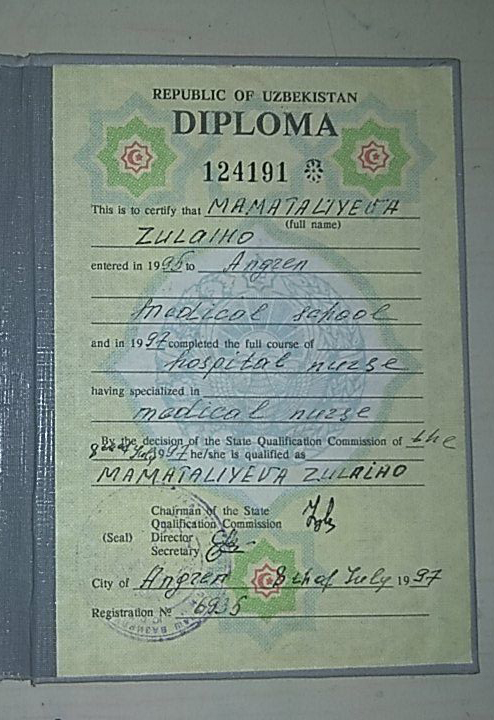 REPUBLIC OF UZBEKISTAN
DIPLOMA
124191
This is to certify that MAMATALIYEVA
(full name)
ZULAIHO
entered in 1995 to Angren
medical school
and in 1997 completed the full course of
hospital nurse
having specialized in
medical nurse
By the decision of the State Qualification Commission of the
July 1997 he/she is qualified as
MAMATALIYEVA ZULAIHO
Chairman of the State
Qualification Commission
(Seal) Director
Secretary
City of Angren 8 th of July 1997
Registration № 6935